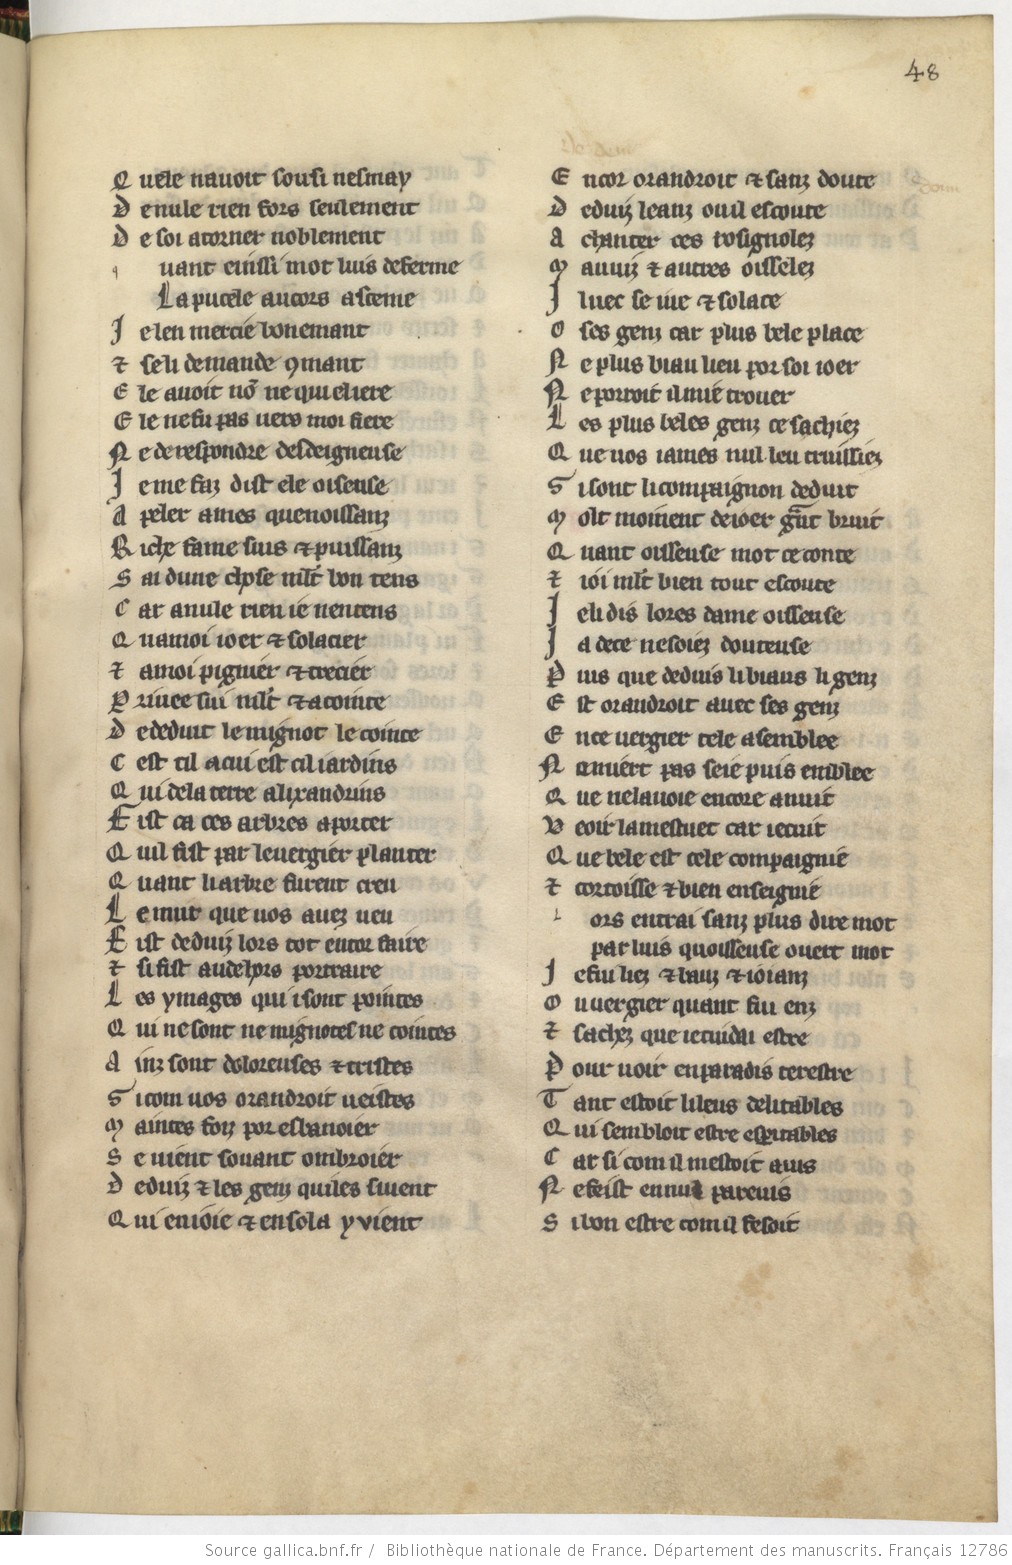 48
Q uele nauoit sousi nesmay
D e nule rien fors seulement
D e soi atorner noblement
q uant einssi mot luis deferme
La pucele aucors aceme
J e len mercie bonemant
⁊ se li demande 9mant
E le auoit nõ ne qui eliere
E le ne fu pas uers moi fiere
N e de respondre desdeigneuse
J e me faz dist ele oiseuse
A peler a mes quenoissanz
R iche fame suis ⁊ puissanz
S ai dune chose mlt bon tens
C ar a nule rien ie nentens
Q ua moi ioer ⁊ solacier
⁊ a moi pignier ⁊ trecier
P riuee sui mlt ⁊ acointe
D e deduit le mignot le cointe
C est cil a cui est cil iardins
Q ui de la terre alixandrins
F ist ca ces arbres aporter
Q uil fist par le uergier planter
Q uant li arbre furent creu
L e mur que uos auez ueu
F ist deduiz lors tot entor faire
⁊ si fist au dehors portraire
L es ymages qui i sont pointes
Q ui ne sont ne mignotes ne cointes
A inz sont doloreuses ⁊ tristes
S i com uos orandroit ueistes
M aintes foiz por esbanoier
S e uient souant ombroier
D eduiz ⁊ les genz qui les siuent
Q ui en ioie ⁊ en sola y vient
E ncor orandroit ⁊ sanz doute
D eduiz leanz ou il escoute
A chanter ces rosignolez
M auuiz ⁊ autres oisselez
J luec se iue ⁊ solace
O ses genz car plus bele place
N e plus biau lieu por soi ioer
N e porroit il mie trouer
L es plus beles genz ce sachiez
Q ue uos iames nul leu truissiez
S i sont li compaignon deduit
M olt moinent de ioer grãt bruit
Q uant oisseuse mot ce conte
⁊ ioi mlt bien tout escoute
J e li dis lores dame oisseuse
J a de ce ne soiez douteuse
P uis que deduis li biaus li genz
E st orandroit auec ses genz
E n ce uergier cele asemblee
N e miert pas se ie puis emblee
Q ue ne la uoie encore anuit
V eoir la mestuet car ie cuit
Q ue bele est cele compaignie
⁊ cortoisse ⁊ bien enseignie
L ors entrai sanz plus dire mot
par luis quoisseuse ouert mot
J e fu liez ⁊ bauz ⁊ ioianz
O u uergier quant fui enz
⁊ sachez que ie cuidai estre
P our uoir en paradis terestre
T ant estoit li leus delitables
Q ui sembloit estre esperitables
C ar si com il mestoit auis
N e feist en nul pareuis
S i bon estre com il fesoit
Source gallica.bnf.fr / Bibliothèque nationale de France. Département des manuscrits. Français 12786